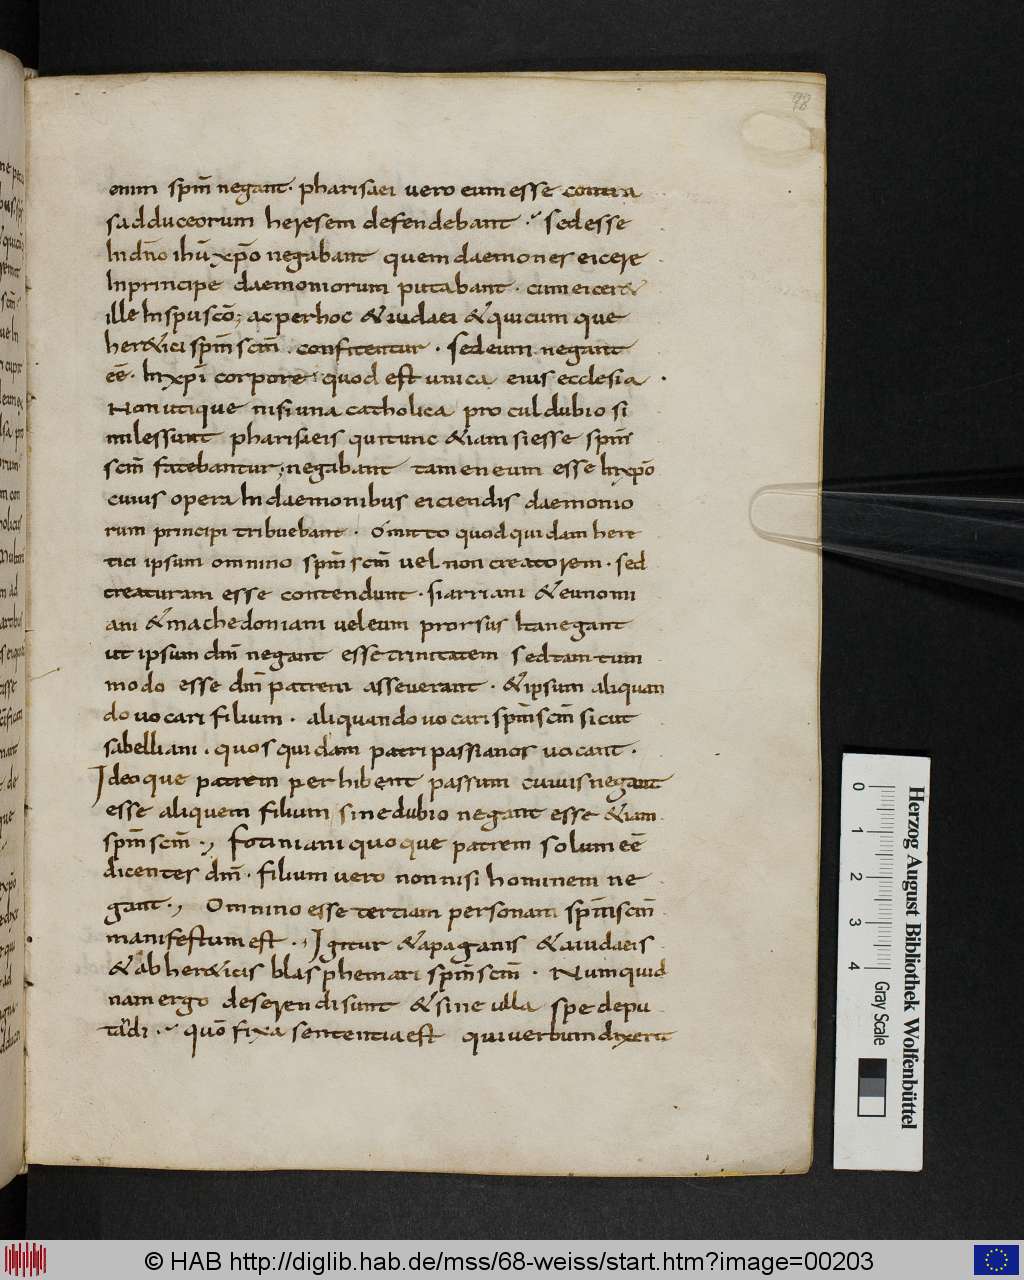 98
omni spm̄ negant. pharisaei vero eum esse contra
sadduceorum heresem defendebant sed esse
In dn̄o ihū xp̄o negabant quem daemones eicere
In principe daemoniorum putabant. cum eicer&
ille In spu scō; ac per hoc & iudaei & qui cum que
her&ici spm̄ scm̄. confitentur. sed eum negant
eē. In xpī corpore quod est unica eius ecclesia.
Non utique nisi una catholica pro cul dubio si
miles sunt pharisaeis qui tunc &iam si esse spm̄
scm̄ fatebantur; negabant tamen eum esse In xp̄o
cuius opera In daemonibus eiciendis daemonio
rum principi tribuebant. omitto quod quidam here
tici ipsum omnino spm̄ scm̄ vel non creatorem. sed
creaturam esse contendunt. si arriani & eunomi
ani & machedoniani vel eum prorsus Ita negant
ut ipsum dm̄ negant esse trinitatem sed tam tum
modo esse dm̄ patrem asseverant. & ipsum aliquan
do vocari filium. aliquando vocari spm̄ scm̄ sicut
sabelliani. quos quidam patripassianos vocant.
Ideoque patrem perhibent passum cuius negant
esse aliquem filium sine dubio negant esse &iam
spm̄ scm̄., fotiniani quoque patrem solum eē
dicentes dm̄. filium vero non nisi hominem ne
gant., Omnino esse tertiam personam spm̄ scm̄
manifestum est., Igitur & a paganis & a iudaeis
& ab her&icis blasphemari spm̄ scm̄. Num quid
nam ergo deserendi sunt & sine ulla spe depu
tandi. quō fixa sententia est qui verbum dixerit
0
1
2
3
4
Gray Scale
Herzog August Bibliothek Wolfenbüttel
© HAB http://diglib.hab.de/mss/68-weiss/start.htm?image=00203